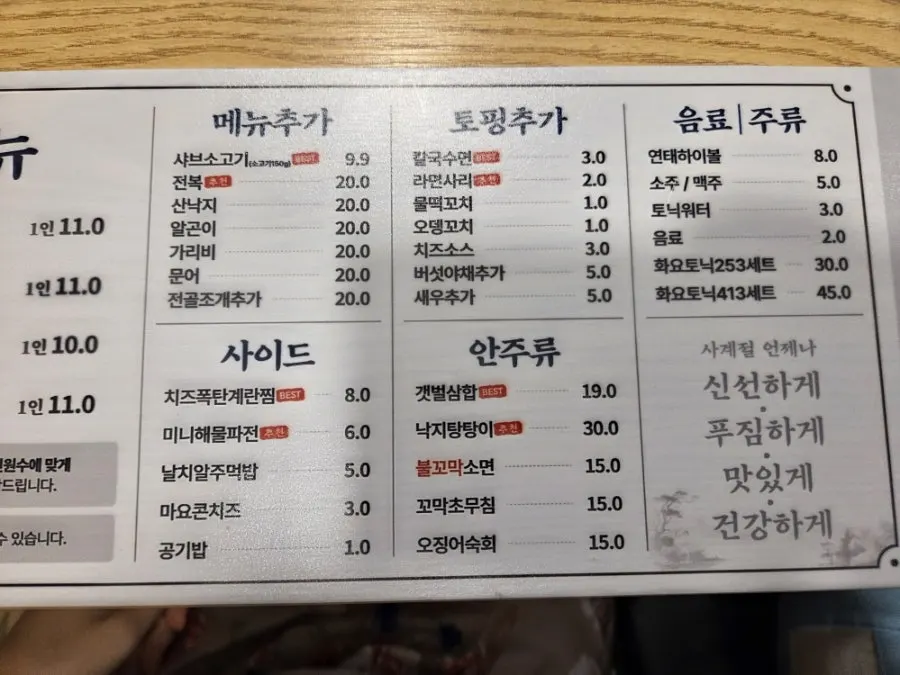 뉴
1인 11.0
1인 11.0
1인 10.0
1인 11.0
인원수에 맞게
드립니다.
수 있습니다.
메뉴추가
샤브소고기(소고기150g) BEST 9.9
전복 추천 20.0
산낙지 20.0
알곤이 20.0
가리비 20.0
문어 20.0
전골조개추가 20.0
사이드
치즈폭탄계란찜 BEST 8.0
미니해물파전 추천 6.0
날치알주먹밥 5.0
마요콘치즈 3.0
공기밥 1.0
토핑추가
칼국수면 BEST 3.0
라면사리 추천 2.0
물떡꼬치 1.0
오뎅꼬치 1.0
치즈소스 3.0
버섯야채추가 5.0
새우추가 5.0
안주류
갯벌삼합 BEST 19.0
낙지탕탕이 추천 30.0
불꼬막소면 15.0
꼬막초무침 15.0
오징어숙회 15.0
음료|주류
연태하이볼 8.0
소주 / 맥주 5.0
토닉워터 3.0
음료 2.0
화요토닉253세트 30.0
화요토닉413세트 45.0
사계절 언제나
신선하게
푸짐하게
맛있게
건강하게